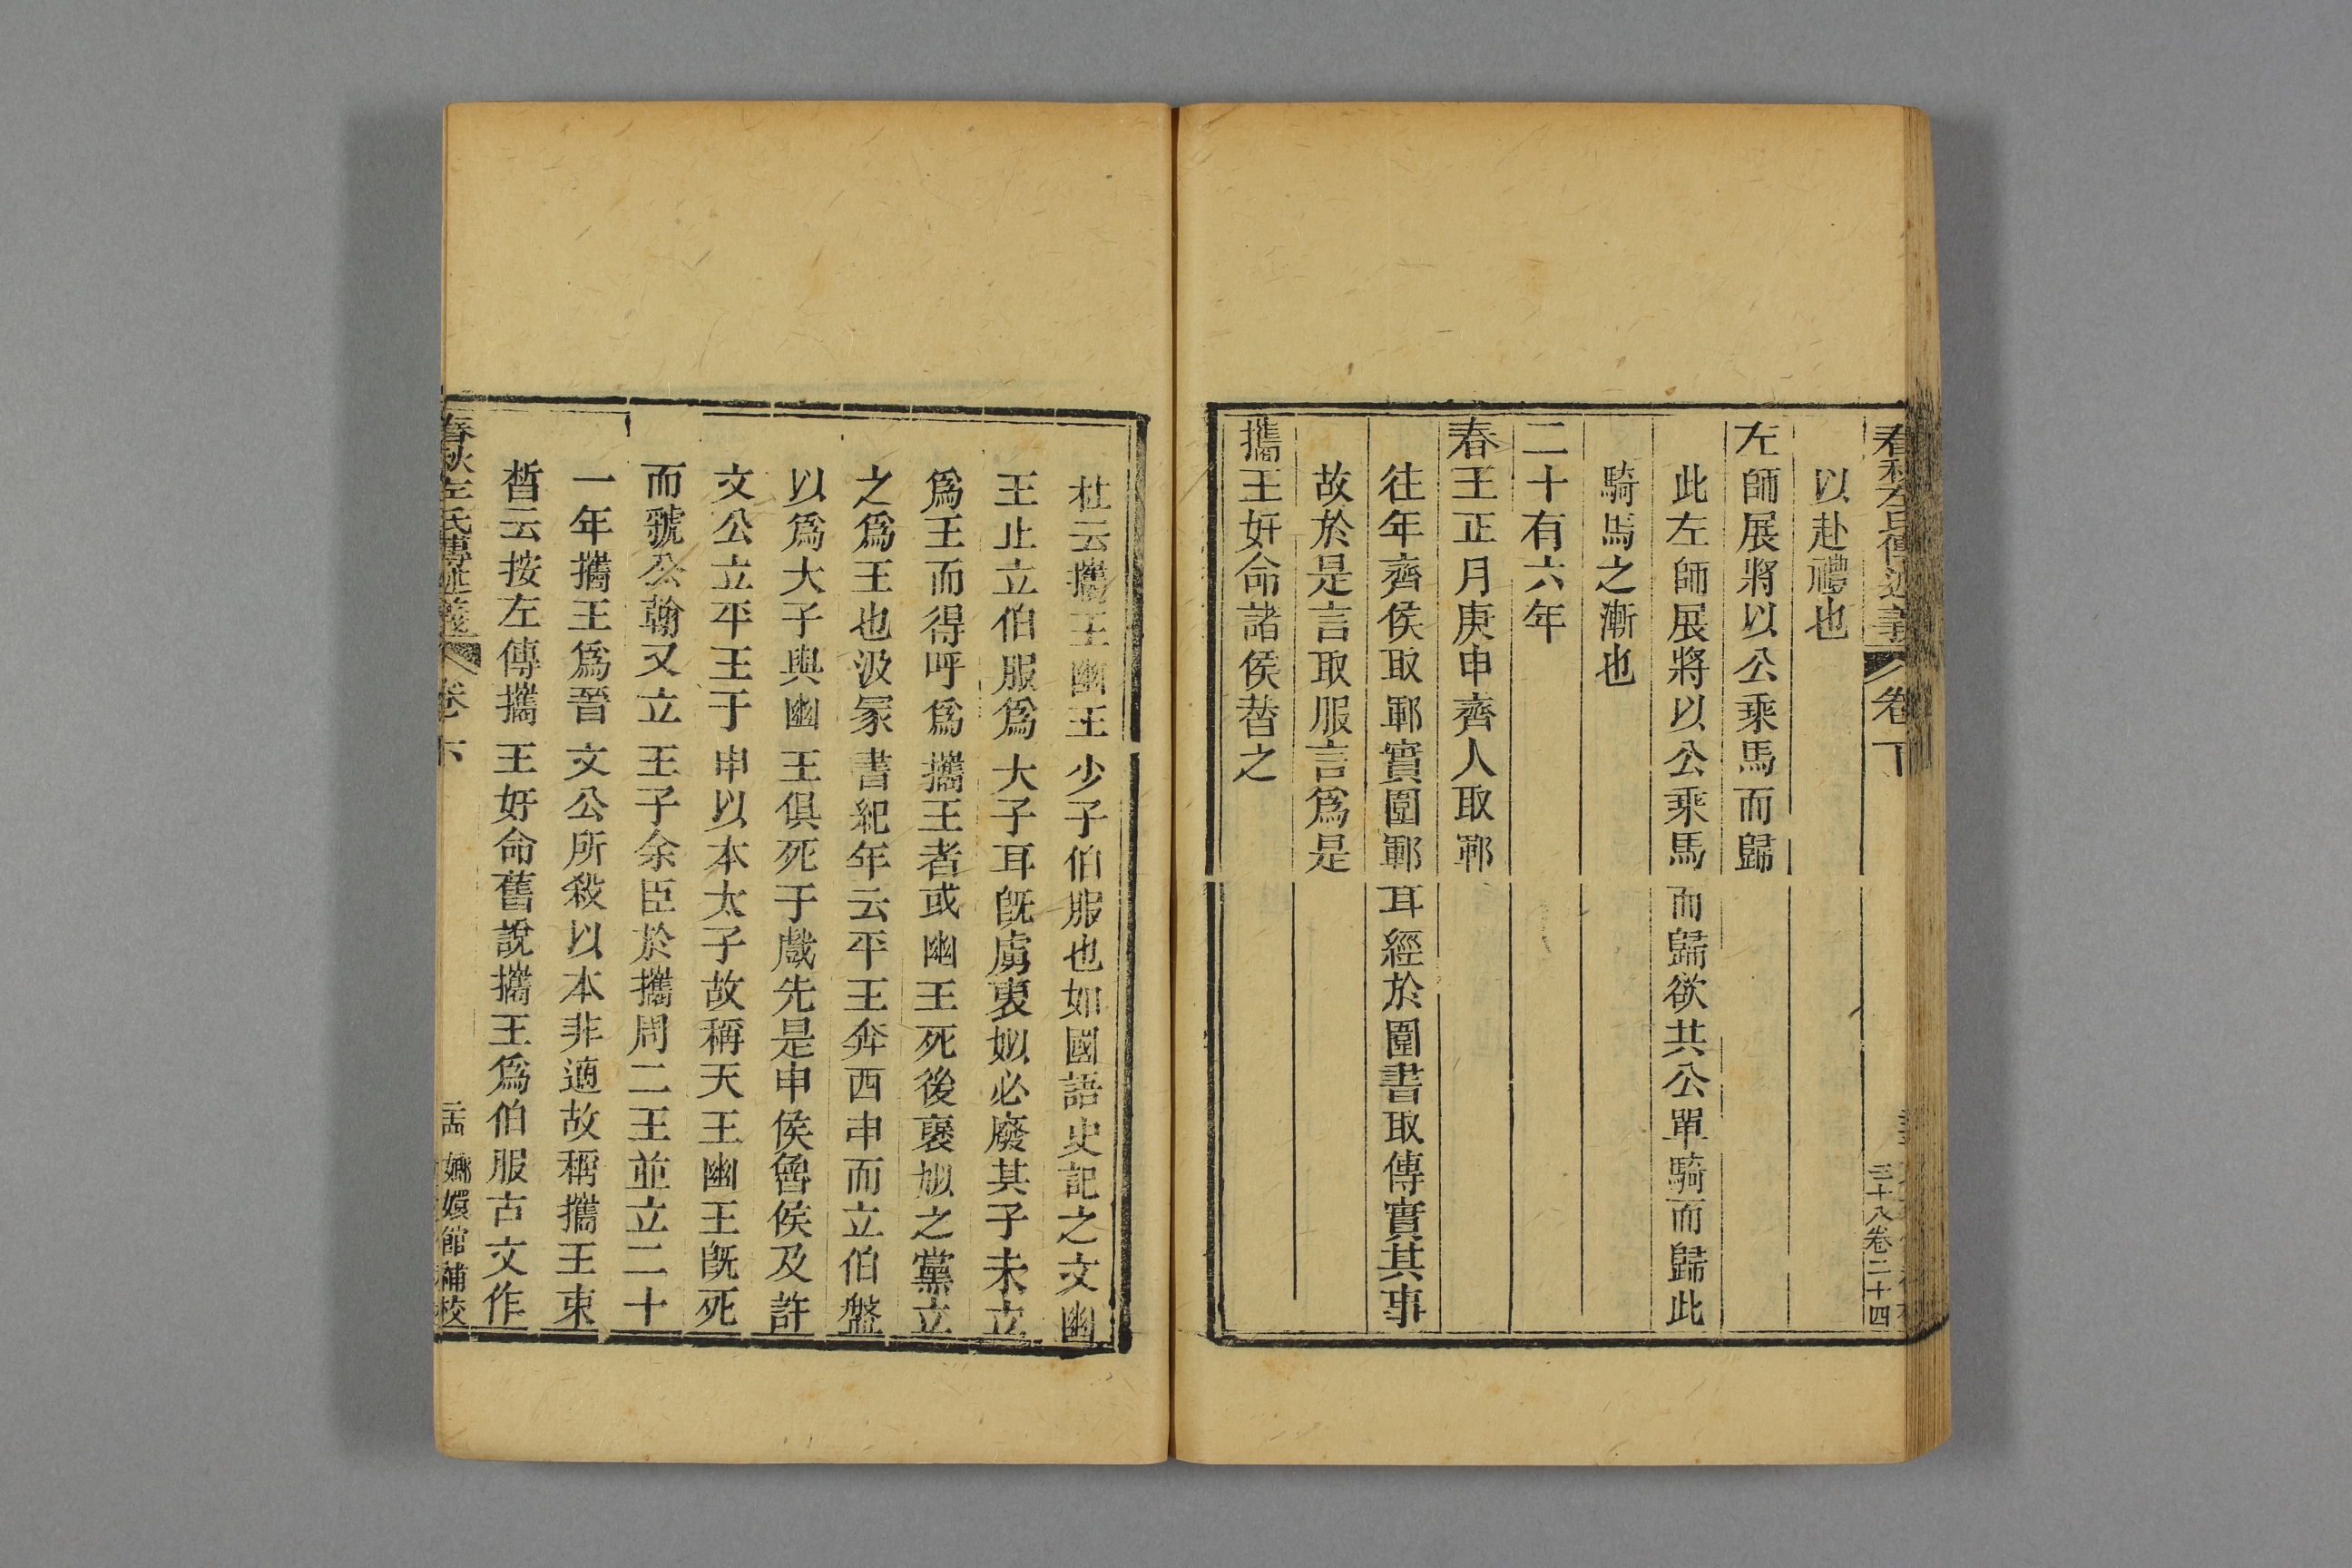 春秋左氏傳述義 卷下 三十八卷二十四
以赴禮也
左師展將以公乘馬而歸
此左師展將以公乘馬而歸欲共公單騎而歸此
騎馬之漸也
二十有六年
春王正月庚申齊人取鄆
往年齊侯取鄆實圍鄆耳經於圍書取傳實其事
故於是言取服言爲是
攜王奸命諸侯替之
杜云攜王幽王少子伯服也如國語史記之文幽
王止立伯服爲大子耳旣虜褒姒必廢其子未立
爲王而得呼爲攜王者或幽王死後褒姒之黨立
之爲王也汲冢書紀年云平王奔西申而立伯盤
以爲大子與幽王俱死于戲先是申侯魯侯及許
文公立平王于申以本太子故稱天王幽王旣死
而虢公翰又立王子余臣於攜周二王並立二十
一年攜王爲晉文公所殺以本非適故稱攜王束
晳云按左傳攜王奸命舊說攜王爲伯服古文作
春秋左氏傳述義 卷下 嫏嬛館補校